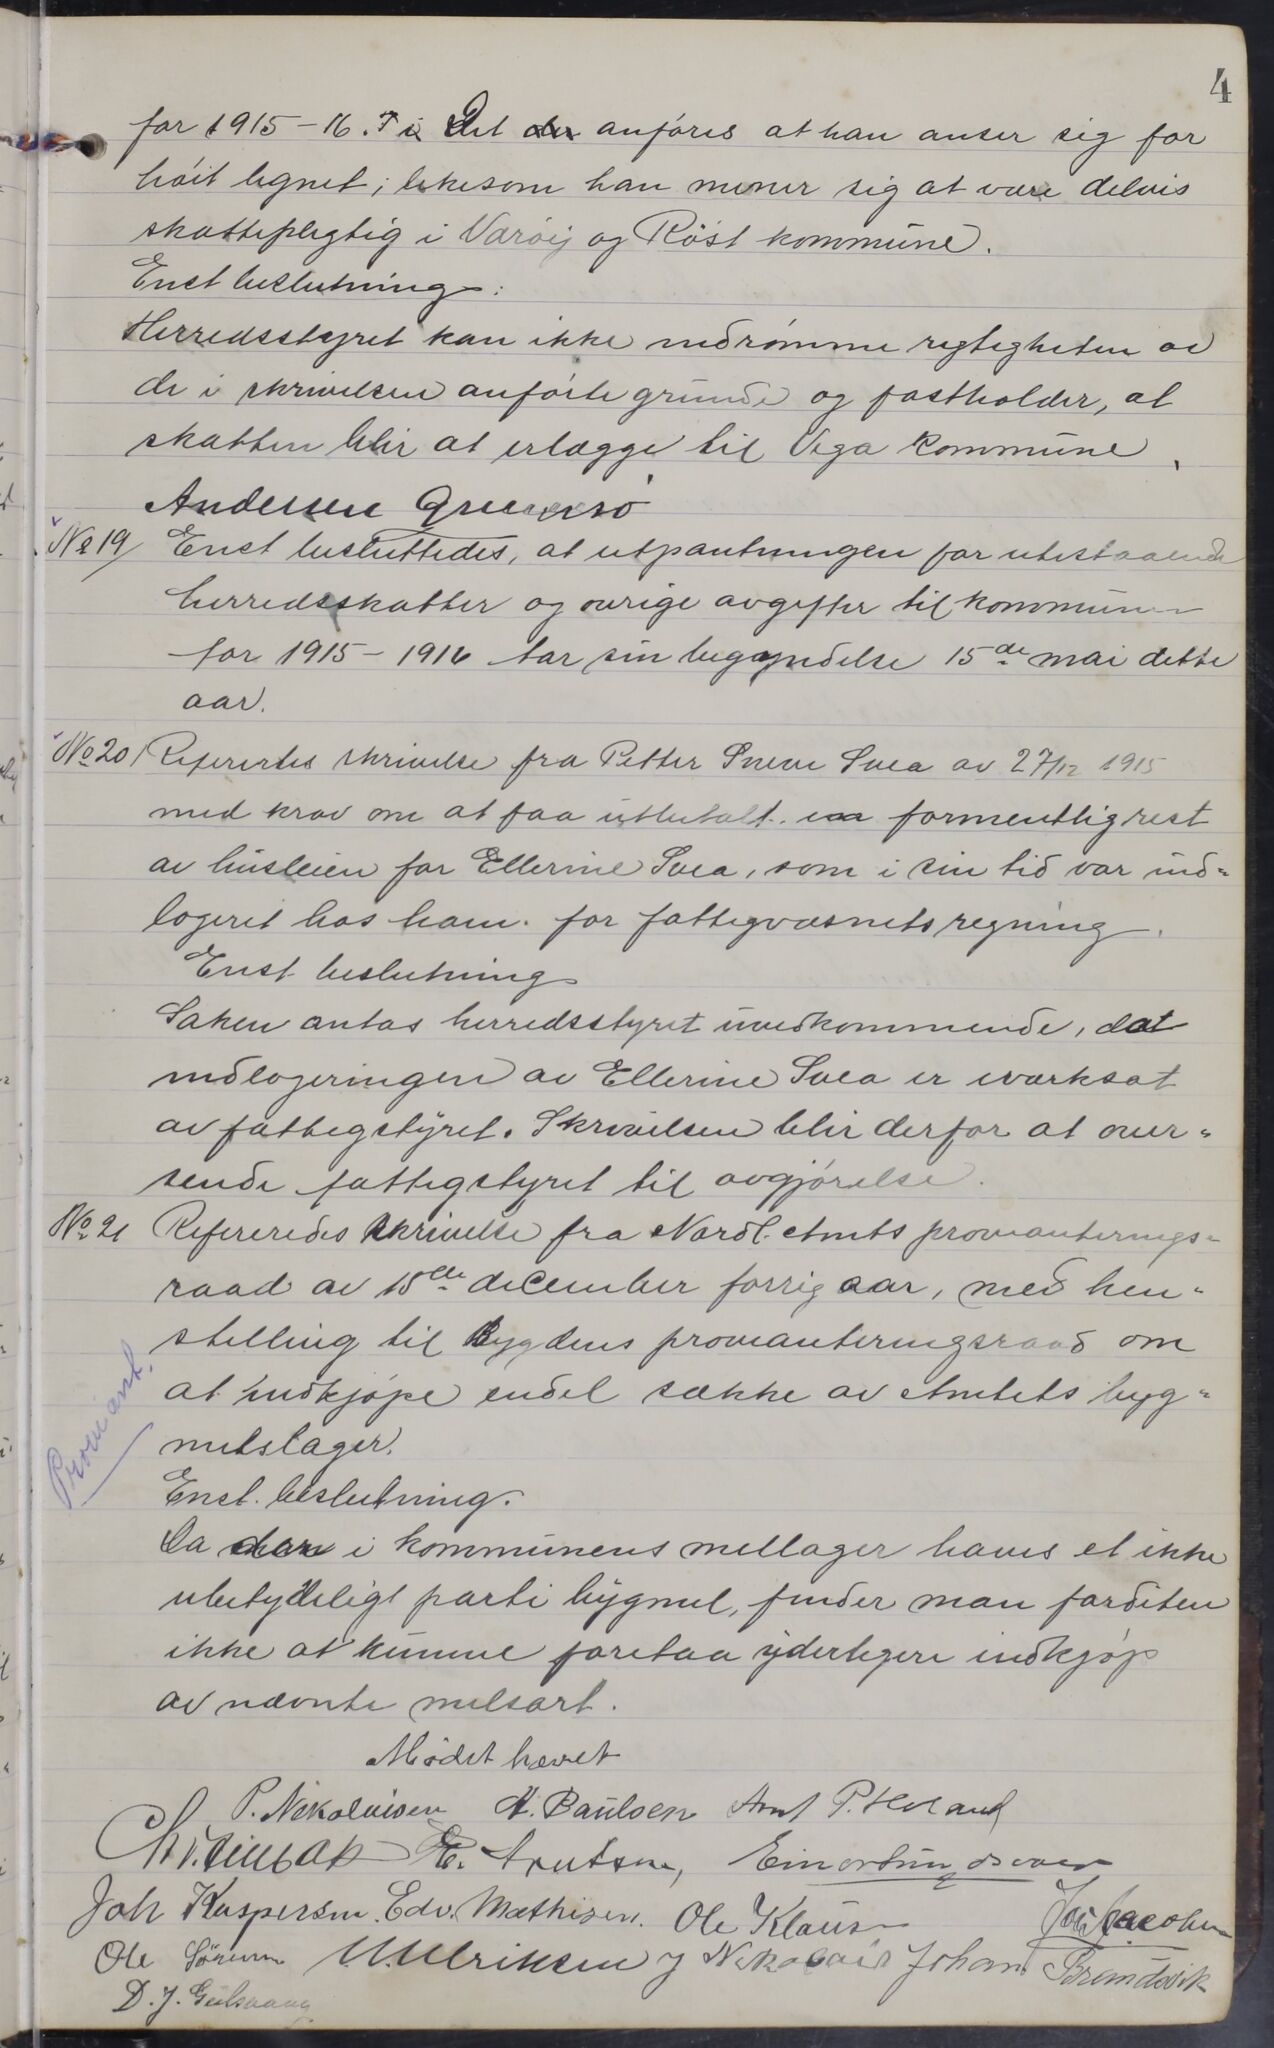 4
for 1915-16. Det anföres at han anser sig for
höit lignet; likesom han mener sig at være delvis
skattepligtig i Værøy og Röst kommune.
Enst beslutning:
Herredsstyret kan ikke indrömme rigtigheten av
de i skrivelsen anförte grunde og fastholder, at
skatten blir at erlægge til Vega kommune.
Andersen
No 19 Enst besluttedes, at utpantningen for utestaaende
herredsskatter og övrige avgifter til kommunen
for 1915-1916 tar sin begyndelse 15de mai dette
aar.
No 20 Refererdes skrivelse fra Petter Svea av 27/12 1915
med krav om at faa utbetalt formentlig rest
av husleien for Ellerine Svea, som i sin tid var ind-
logeret hos ham for fattigvæsnets regning.
Enst beslutning
Saken antas herredsstyret uvedkommende, da
indlogeringen av Ellerine Svea er iverksat
av fattigstyret. Skrivelsen blir derfor at over-
sende fattigstyret til avgjörelse.
No 21 Refereredes skrivelse fra Nordl. Amts provianterings-
raad av 15de december forrige aar, med hen-
stelling til Bygdens provianteringsraad om
at indkjøpe endel sække av Amtets byg-
melslager.
Proviant.
Enst. beslutning.
Da der i kommunens mellager haves et ikke
ubetydeligt parti bygmel, finder man forditen
ikke at kunne foretaa yderligere indkjøp
av nævnte melsort.
Mödet hævet
P. Nikolaisen A. Paulsen P. Holand
Knutsen, Einer
Joh Kaspersen. Edv. Mathisen. Ole Klausen Jacobsen
Ole Sörensen Ulriksen J Nikolais Johan Brandsvik
D. J.